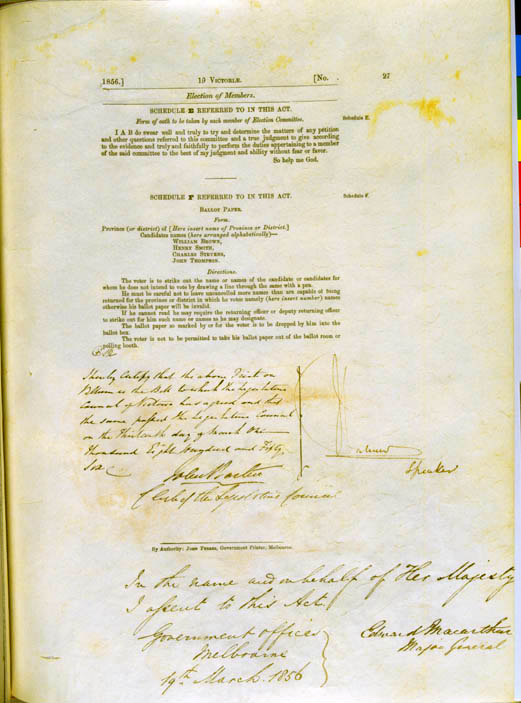 1856.] 19 VICTORIÆ. [No. 27
Election of Members.
SCHEDULE E REFERRED TO IN THIS ACT.
Form of oath to be taken by each member of Election Committee.
Schedule E.
I A B do swear well and truly to try and determine the matters of any petition
and other questions referred to this committee and a true judgment to give according
to the evidence and truly and faithfully to perform the duties appertaining to a member
of the said committee to the best of my judgment and ability without fear or favor.
So help me God.
SCHEDULE F REFERRED TO IN THIS ACT.
Schedule F.
BALLOT PAPER.
Form.
Province (or district) of [Here insert name of Province or District.]
Candidates names (here arranged alphabetically)—
WILLIAM BROWN,
HENRY SMITH,
CHARLES STEVENS,
JOHN THOMPSON.
Directions.
The voter is to strike out the name or names of the candidate or candidates for
whom he does not intend to vote by drawing a line through the same with a pen.
He must be careful not to leave uncancelled more names than are capable of being
returned for the province or district in which he votes namely (here insert number) names
otherwise his ballot paper will be invalid.
If he cannot read he may require the returning officer or deputy returning officer
to strike out for him such name or names as he may designate.
The ballot paper so marked by or for the voter is to be dropped by him into the
ballot box.
The voter is not to be permitted to take his ballot paper out of the ballot room or
polling booth.
I hereby Certify that the above Print on
Vellum is the Bill to which the Legislative
Council of Victoria has agreed and that
the same passed the Legislative Council
on the thirteenth day of March One
thousand Eight hundred and Fifty
Six
John Barker
Clerk of the Legislative Council
Speaker
By Authority: JOHN FERRES, Government Printer, Melbourne.
In the name and on behalf of Her Majesty
I assent to this Act.
Government offices
Melbourne
19th March. 1856
Edward Macarthur
Major General